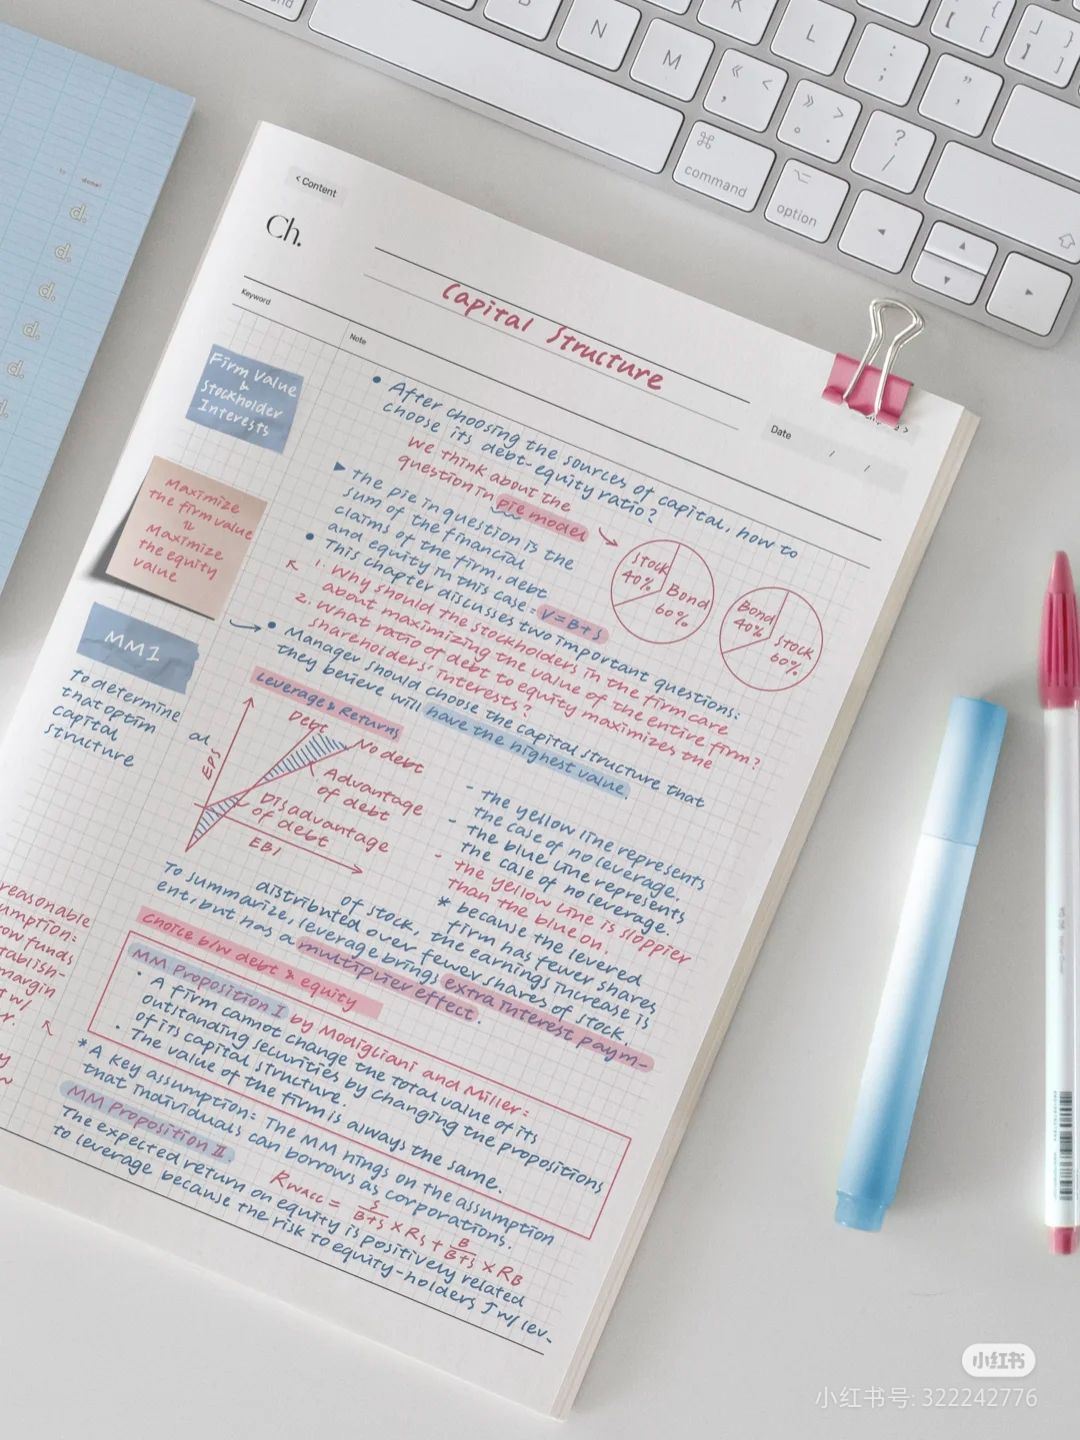 B
N
M
K
L
:
;
{ [
[
} ]
]
« <
,
» >
.
"
'
?
/
⌘
command
⌥
option
d.
d.
d.
d.
d.
d.
< Content
Ch.
Capital Structure
Keyword
Note
Date / /
Firm Value
&
Stockholder
Interests
• After choosing the sources of capital, how to
choose its debt-equity ratio?
We think about the
question in pie model
Maximize
the firm value
Maximize
the equity
value
▶ the pie in question is the
sum of the financial
claims of the firm, debt
and equity in this case = V=B+S
Stock
40%
Bond
60%
Bond
40%
Stock
60%
• This chapter discusses two important questions:
1. Why should the stockholders in the firm care
about maximizing the value of the entire firm?
2. What ratio of debt to equity maximizes the
shareholders' interests?
MM1
to determine
that optim al
capital
structure
• Manager should choose the capital structure that
they believe will have the highest value.
Leverage & Returns
Debt
No debt
EPS
Advantage
of debt
Disadvantage
of debt
EBI
- the yellow line represents
the case of no leverage.
- the blue line represents
the case of no leverage.
- the yellow line is sloppier
than the blue on.
* because the levered
firm has fewer shares
of stock, the earnings increase is
distributed over fewer shares of stock.
To summarize, leverage brings extra interest paym-
ent, but has a multiplier effect.
Choice b/w debt & equity
MM Proposition I by Modigliani and Miller:
• A firm cannot change the total value of its
outstanding securities by changing the propositions
of its capital structure.
• The value of the firm is always the same.
*A key assumption: The MM hings on the assumption
that individuals can borrows as corporations.
reasonable
umption:
row funds
tablish-
margin
t w/
r.
MM Proposition II
RWACC = S/B+S × RS + B/B+S × RB
The expected return on equity is positively related
to leverage because the risk to equity-holders ↑ w/ lev-
小红书
小红书号: 322242776